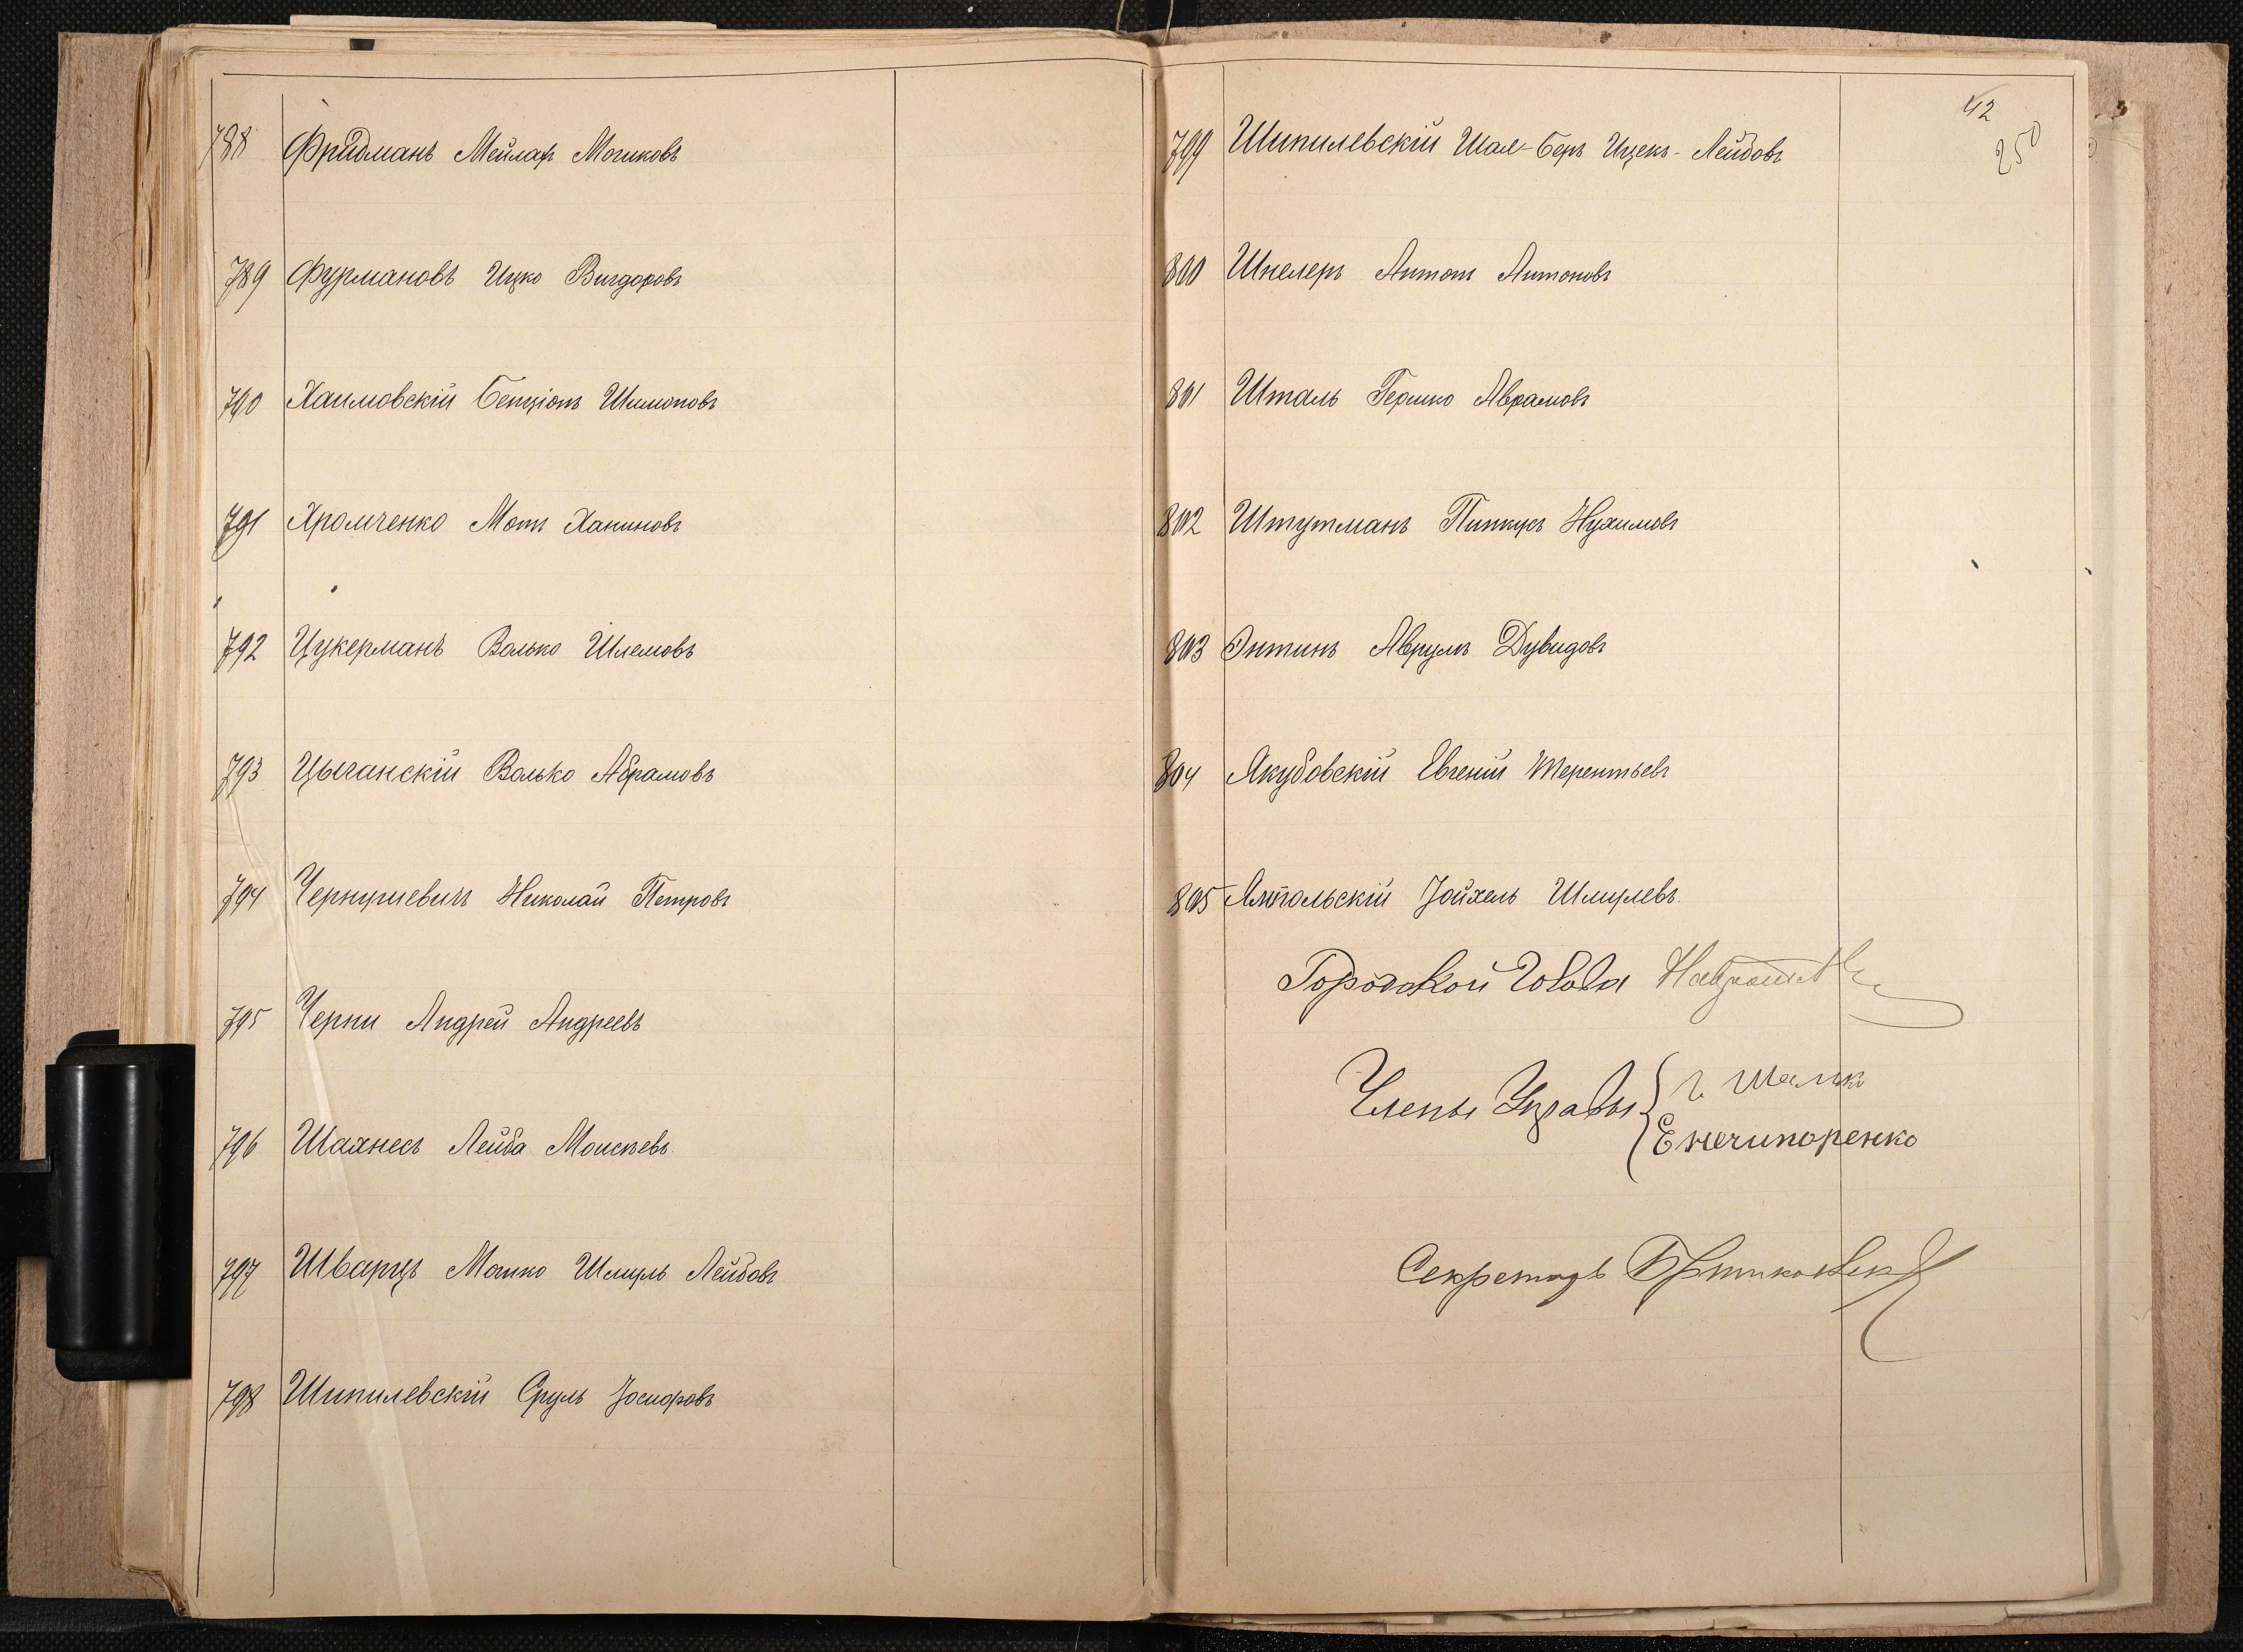 788 Фридманъ Мейлах Мошковъ
789 Фурмановъ Ицко Вигдоровъ
790 Хаимовскій Бенціонъ Шимоновъ
791 Хромченко Мотъ Ханиновъ
792 Цукерманъ Волько Шлемовъ
793 Цыганскій Волько Абрамовъ
794 Николай Петровъ
795 Черни Андрей Андреевъ
796 Шахнесъ Лейба Моисѣевъ
797 Шварцъ Мошко Шмуль Лейбовъ
798 Шпилевскій Сруль Іосифовъ
42
250
799 Шпилевскій Шая-Беръ Ицекъ-Лейбовъ
800 Шнелеръ Антонъ Антоновъ
801 Шталь Гершко Аврамовъ
802 Штутманъ Пинкусъ Нухимовъ
803 Энтинъ Аврумъ Дувидовъ
804 Якубовскій Евгеній Терентьевъ
805 Ямпольскій Іойхель Шмулевъ.
Городской Голова
Члены Управы
Е Нечипоренко
Секретарь